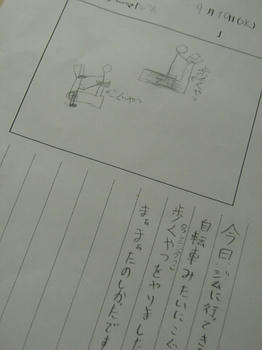 9月19日(水)
歩くやつ
こぐやつ
今日、ジムに行ってき
自転車みたいにこぐ
歩くやつをやりました
まぁまぁたのしかたです